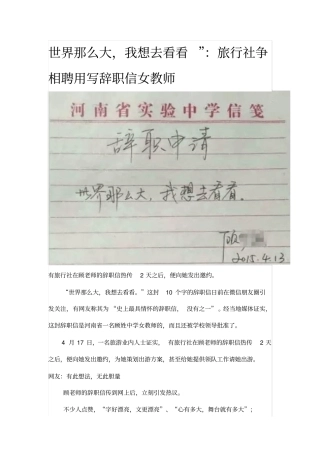 世界那么大，我想去看看 ”：旅行社争
相聘用写辞职信女教师
河南省实验中学信笺
辞职申请
世界那么大，我想去看看。
2015.4.13
有旅行社在顾老师的辞职信热传 2 天之后，便向她发出邀约。
“世界那么大，我想去看看。”这封 10 个字的辞职信日前在微信朋友圈引
发关注，有网友称其为 “史上最具情怀的辞职信， 没有之一”。经当地媒体证实，
这封辞职信是河南省一名顾姓中学女教师的，而且还被学校领导批准了。
4 月 17 日，一名旅游业内人士证实， 有旅行社在顾老师的辞职信热传 2 天
之后，便向她发出邀约，为她策划出游方案，甚至给她提供领队工作请她出游。
网友：有此想法，无此胆量
顾老师的辞职信传到网上后，立刻引发热议。
不少人点赞，“字好漂亮，文更漂亮”、“心有多大，舞台就有多大”；